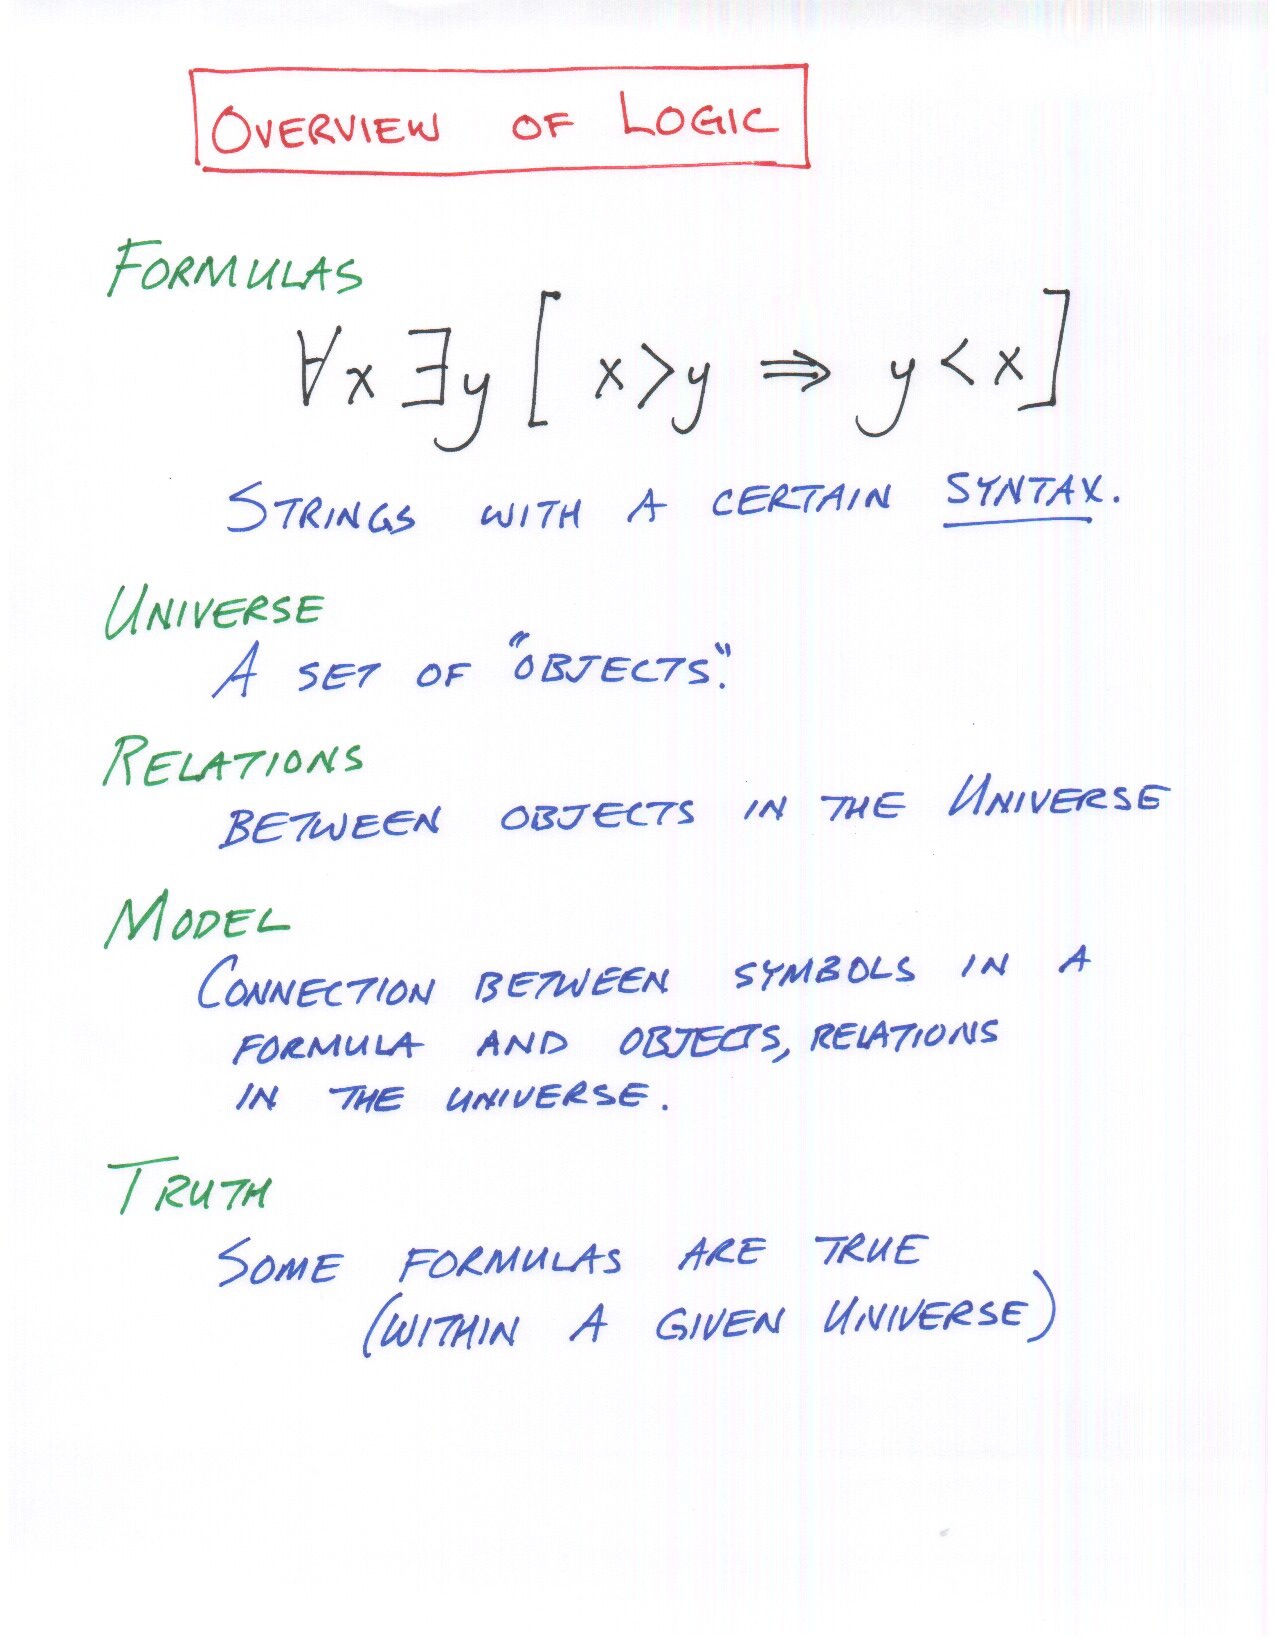 OVERVIEW OF LOGIC
FORMULAS
∀x ∃y [ x>y ⇒ y<x ]
STRINGS WITH A CERTAIN SYNTAX.
UNIVERSE
A SET OF "OBJECTS".
RELATIONS
BETWEEN OBJECTS IN THE UNIVERSE
MODEL
CONNECTION BETWEEN SYMBOLS IN A
FORMULA AND OBJECTS, RELATIONS
IN THE UNIVERSE.
TRUTH
SOME FORMULAS ARE TRUE
(WITHIN A GIVEN UNIVERSE)